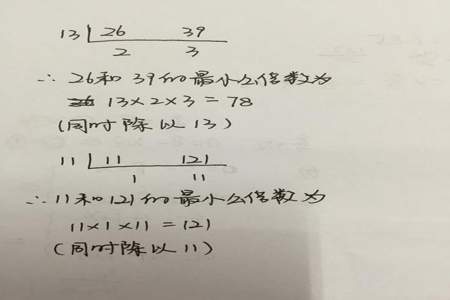 13 26 39
2 3
∴ 26和39的最小公倍数为
13×2×3=78
(同时除以13)
11 11 121
1 11
∴ 11和121的最小公倍数为
11×1×11=121
(同时除以11)